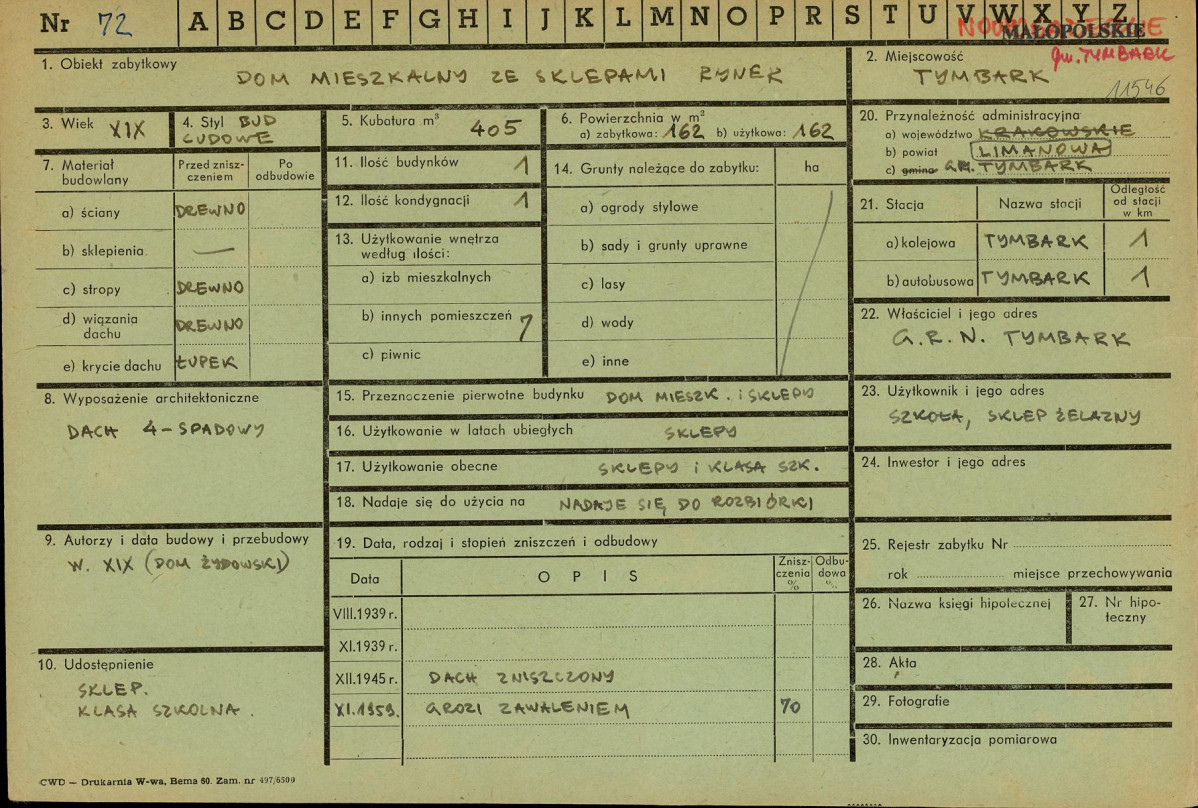 Nr 72 A B C D E F G H I J K L M N O P R S T U V W X Y Z
MAŁOPOLSKIE
gm. TYMBARK
1. Obiekt zabytkowy
DOM MIESZKALNY ZE SKLEPAMI RYNEK
2. Miejscowość
TYMBARK
11546
3. Wiek XIX
4. Styl BUD
LUDOWE
5. Kubatura m³ 405
6. Powierzchnia w m²
a) zabytkowa: 162 b) użytkowa: 162
20. Przynależność administracyjna
a) województwo KRAKOWSKIE
b) powiat LIMANOWA
c) gmina GR. TYMBARK
7. Materiał budowlany
Przed zniszczeniem
Po odbudowie
a) ściany DREWNO
b) sklepienia —
c) stropy DREWNO
d) wiązania dachu DREWNO
e) krycie dachu ŁUPEK
11. Ilość budynków 1
12. Ilość kondygnacji 1
13. Użytkowanie wnętrza
według ilości:
a) izb mieszkalnych
b) innych pomieszczeń 7
c) piwnic
14. Grunty należące do zabytku: ha
a) ogrody stylowe
b) sady i grunty uprawne
c) lasy
d) wody
e) inne
21. Stacja
Nazwa stacji
Odległość
od stacji
w km
a) kolejowa TYMBARK 1
b) autobusowa TYMBARK 1
22. Właściciel i jego adres
G.R.N. TYMBARK
8. Wyposażenie architektoniczne
DACH 4-SPADOWY
15. Przeznaczenie pierwotne budynku DOM MIESZK. i SKLEPY
16. Użytkowanie w latach ubiegłych SKLEPY
17. Użytkowanie obecne SKLEPY i KLASA SZK.
18. Nadaje się do użycia na NADAJE SIĘ DO ROZBIÓRKI
23. Użytkownik i jego adres
SZKOŁA, SKLEP ŻELAZNY
24. Inwestor i jego adres
9. Autorzy i data budowy i przebudowy
W. XIX (DOM ŻYDOWSKI)
19. Data, rodzaj i stopień zniszczeń i odbudowy
Data
OPIS
Zniszczenia %
Odbudowa %
VIII.1939 r.
XI.1939 r.
XII.1945 r. DACH ZNISZCZONY
XI.1959. GROZI ZAWALENIEM 70
25. Rejestr zabytku Nr
rok miejsce przechowywania
26. Nazwa księgi hipotecznej
27. Nr hipoteczny
10. Udostępnienie
SKLEP.
KLASA SZKOLNA.
28. Akta
29. Fotografie
30. Inwentaryzacja pomiarowa
CWD — Drukarnia W-wa, Bema 60. Zam. nr 497/6500